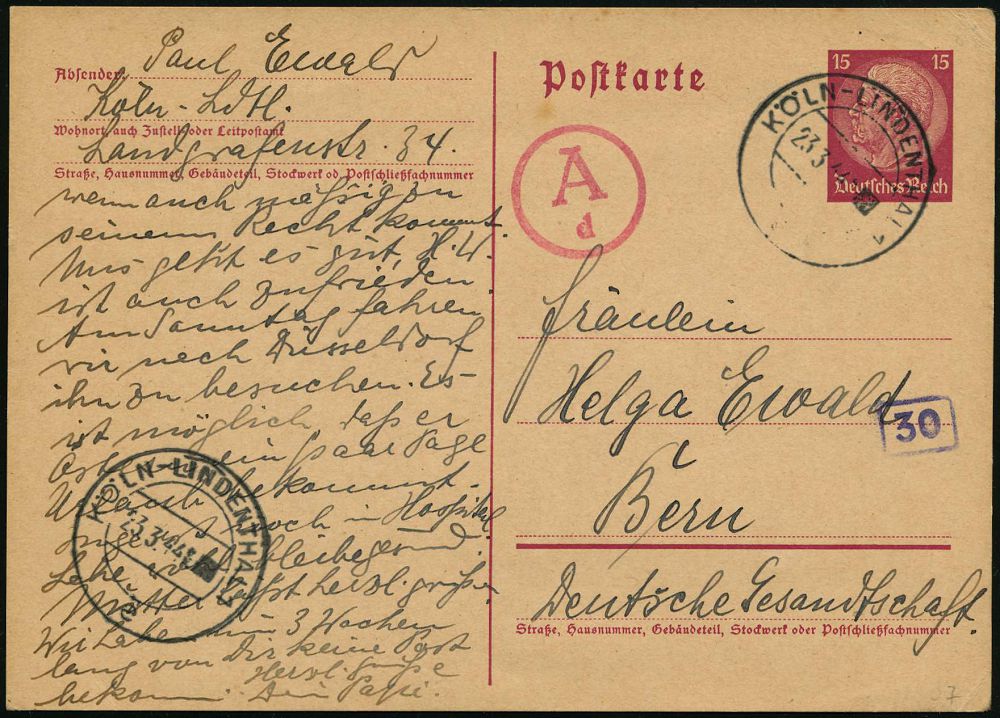 Paul Ewald
Absender:
Köln-Ldtl.
Wohnort, auch Zustell- oder Leitpostamt
Landgrafenstr. 34.
Straße, Hausnummer, Gebäudeteil, Stockwerk od. Postschließfachnummer
wenn auch mässig zu
seinem Recht kommt.
Uns geht es gut, H.U.
ist auch zufrieden.
Am Sonntag fahren
wir nach Düsseldorf
ihn zu besuchen. Es
ist möglich, daß er
ein paar Tage
Urlaub bekommt.
noch im Hospital
bleibe gesund.
Mutter läßt herzl. grüßen
Wir haben 3 Wochen
lang von Dir keine Post
bekomm. Herzl. Grüße
Dein Papi.
KÖLN-LINDENTHAL 1
23.3.
Postkarte
A
d
15 15
Deutsches Reich
KÖLN-LINDENTHAL 1
23.3.
Fräulein
Helga Ewald
30
Bern
Deutsche Gesandtschaft.
Straße, Hausnummer, Gebäudeteil, Stockwerk oder Postschließfachnummer
37